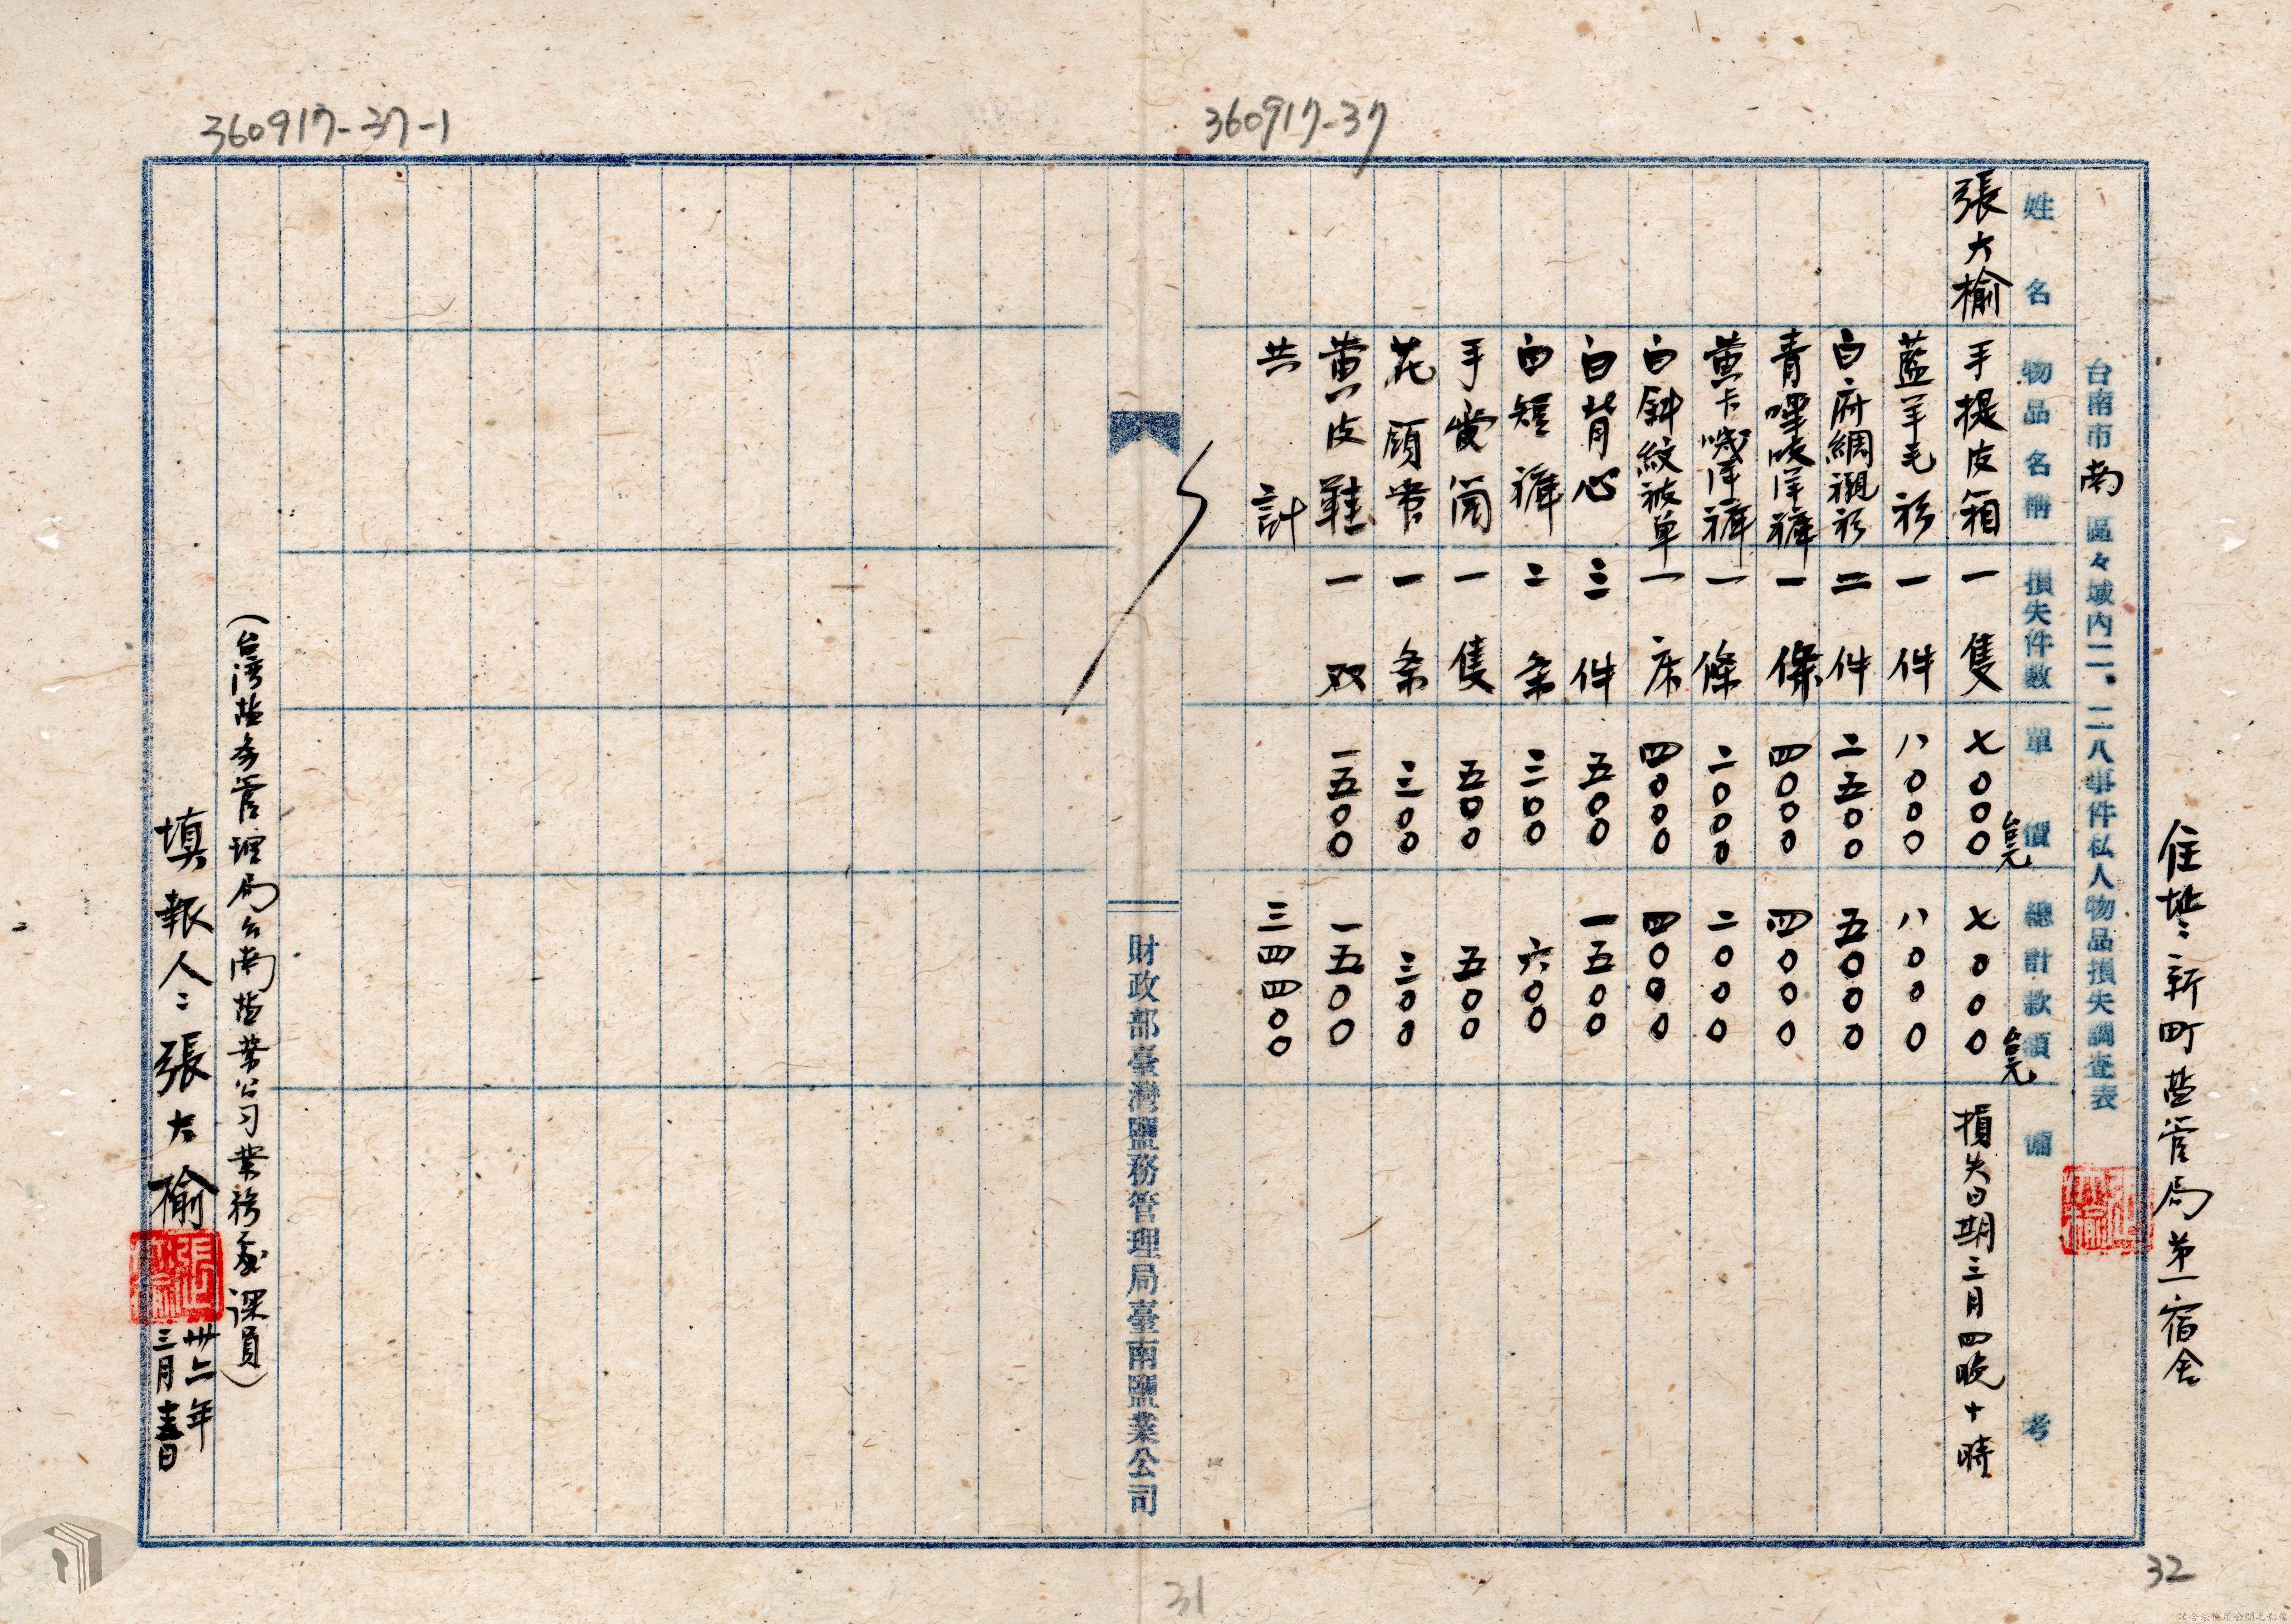 360917-37
360917-37-1
住址：新町塩管局第一宿舍
台南市南區々域內二、二八事件私人物品損失調查表
姓名 物品名稱 損失件數 單價 總計款項 備考
張大榆 手提皮箱 一隻 七〇〇〇台元 七〇〇〇台元 損失日期三月四晚十時
藍羊毛衫 一件 八〇〇〇 八〇〇〇
白府綢襯衫 二件 二五〇〇 五〇〇〇
青嗶嘰洋褲 一條 四〇〇〇 四〇〇〇
黃卡嘰洋褲 一條 二〇〇〇 二〇〇〇
白斜紋被单 一床 四〇〇〇 四〇〇〇
白背心 三件 五〇〇 一五〇〇
白短褲 二条 三〇〇 六〇〇
手電筒 一隻 五〇〇 五〇〇
花領帶 一条 三〇〇 三〇〇
黃皮鞋 一双 一五〇〇 一五〇〇
共計 三四四〇〇
財政部臺灣鹽務管理局臺南鹽業公司
（台湾塩务管理局台南塩業公司業務處課員）
填報人：張大榆
卅六年
三月
31
32
請合法使用公開之影像